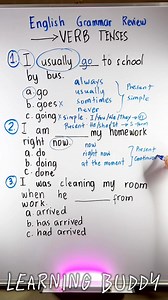 English Grammar Review
→ VERB TENSES
① I usually go to school
by bus.
a. go
b. goes x
c. going x
always
usually
somtimes
never
Present
simple
simple - I/You/We/They → ①
Present - He/She/It → s-form
② I am ______ my homework
right now.
a. do
b. doing
c. done
now
right now
at the moment
Present
Continuous
③ I was cleaning my room
when he ______ from
work.
a. arrived
b. has arrived
c. had arrived
LEARNING BUDDY